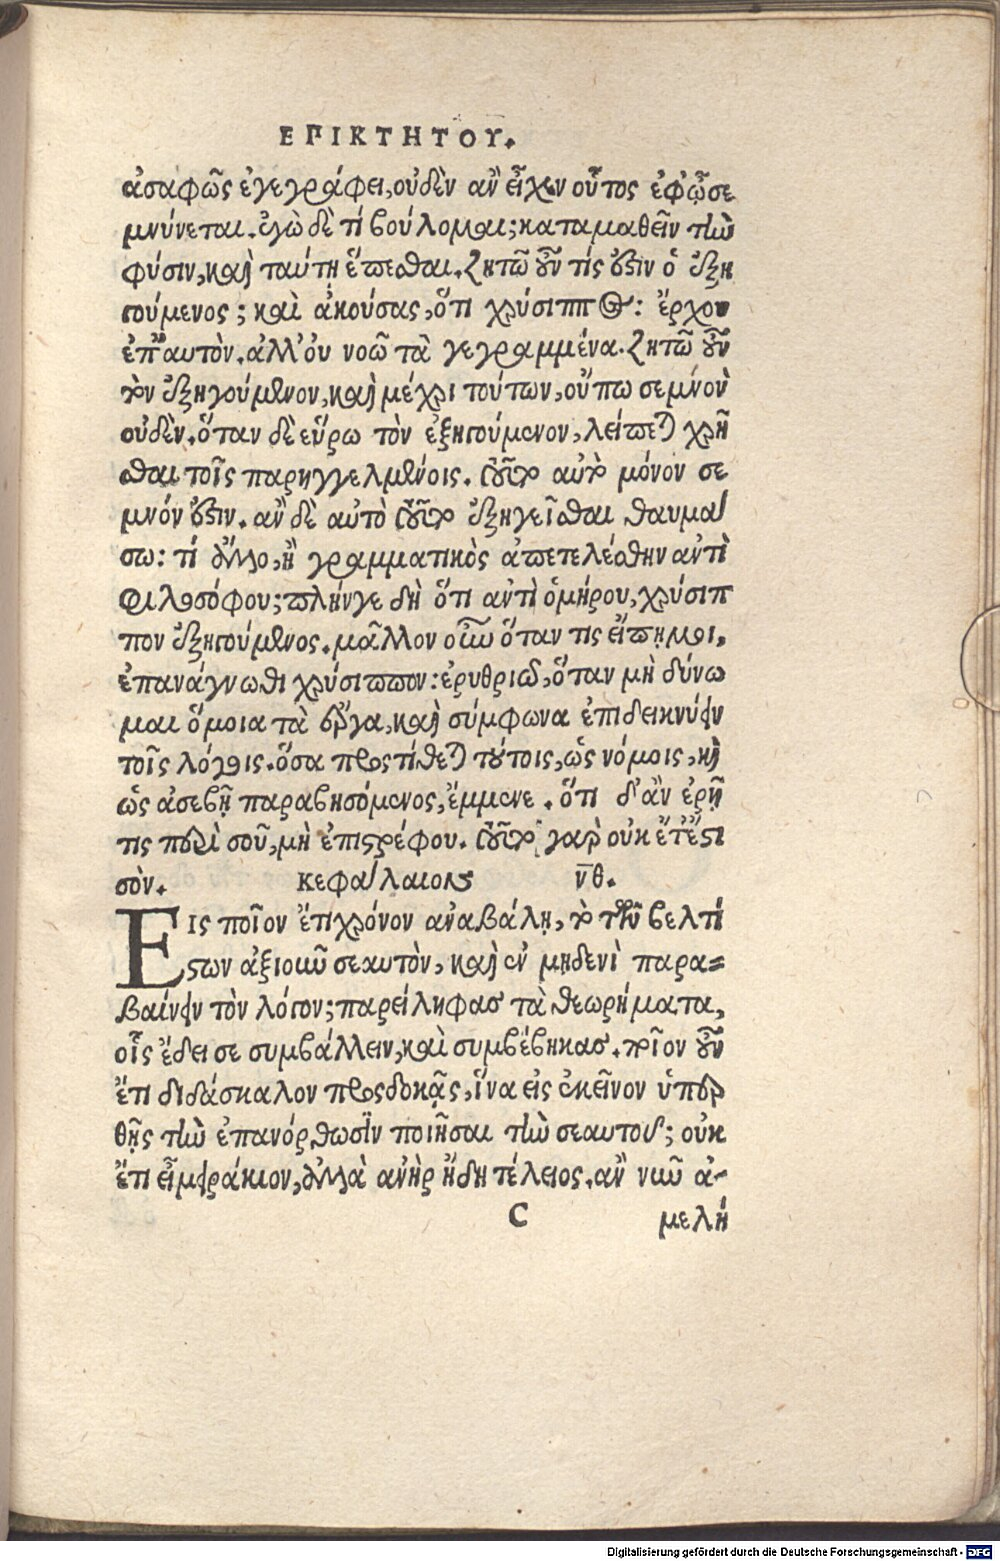 ΕΠΙΚΤΗΤΟΥ.
ἀσαφῶς ἐγεγράφει, οὐδὲν ἂν εἶχεν οὗτος ἐφ ᾧ σε
μνύνεται. ἐγὼ δὲ τί βούλομαι; καταμαθεῖν τὴν
φύσιν, καὶ ταύτῃ ἕπεσθαι. ζητῶ οὖν τίς ἐστιν ὁ ἐξη
γούμενος; καὶ ἀκούσας, ὅτι χρύσιππος: ἔρχομαι
ἐπ' αὐτὸν. ἀλλ' ὀυ νοῶ τὰ γεγραμμένα. ζητῶ οὖν
τὸν ἐξηγούμενον, καὶ μέχρι τούτων, οὔπω σεμνὸν
οὐδὲν. ὅταν δὲ εὕρω τὸν ἐξηγούμενον, λείπεται χρῆ
σθαι τοῖς παρηγγελμένοις. τοῦτο αὐτὸ μόνον σε
μνόν ἐστιν. ἂν δὲ αὐτὸ τοῦτο ἐξηγεῖσθαι θαυμά
σω: τί ἄλλο, ἢ γραμματικὸς ἀπετελέσθην ἀντὶ
φιλοσόφου; πλήνγε δὴ ὅτι ἀντὶ ὁμήρου, χρύσιπ
πον ἐξηγούμενος. μᾶλλον οὖν ὅταν τις εἴπῃ μοι,
ἐπανάγνωθι χρύσιππον: ἐρυθριῶ, ὅταν μὴ δύνω
μαι ὅμοια τὰ ἔργα, καὶ σύμφωνα ἐπιδεικνύειν
τοῖς λόγοις. ὅσα προςτίθεται τούτοις, ὡς νόμοις, καὶ
ὡς ἀσεβῇ παραβησόμενος, ἔμμενε. ὅτι δ' ἂν ἐρῇ
τις περὶ σοῦ, μὴ ἐπιστρέφου. τοῦτο γαρ οὐκ ἔτ' ἔστι
σὸν. κεφαλαιον νθ.
ΕΙς ποῖον ἔτι χρόνον ἀναβάλῃ, τὸ τῶν βελτί
στων ἀξιοῦν σεαυτὸν, καὶ ἐν μηδενὶ παρα=
βαίνειν τὸν λόγον; παρείληφας τὰ θεωρήματα,
οἷς ἔδει σε συμβάλλειν, καὶ συμβέβηκας. ποῖον οὖν
ἔτι διδάσκαλον προςδοκᾷς, ἵνα εἰς ἐκεῖνον ὑπερ
θῇς τὴν ἐπανόρθωσιν ποιῆσαι τὴν σεαυτοῦ; οὐκ
ἔτι εἶ μειράκιον, ἀλλὰ ἀνὴρ ἤδη τέλειος. ἂν νῦν ἀ-
C μελή
Digitalisierung gefördert durch die Deutsche Forschungsgemeinschaft - DFG